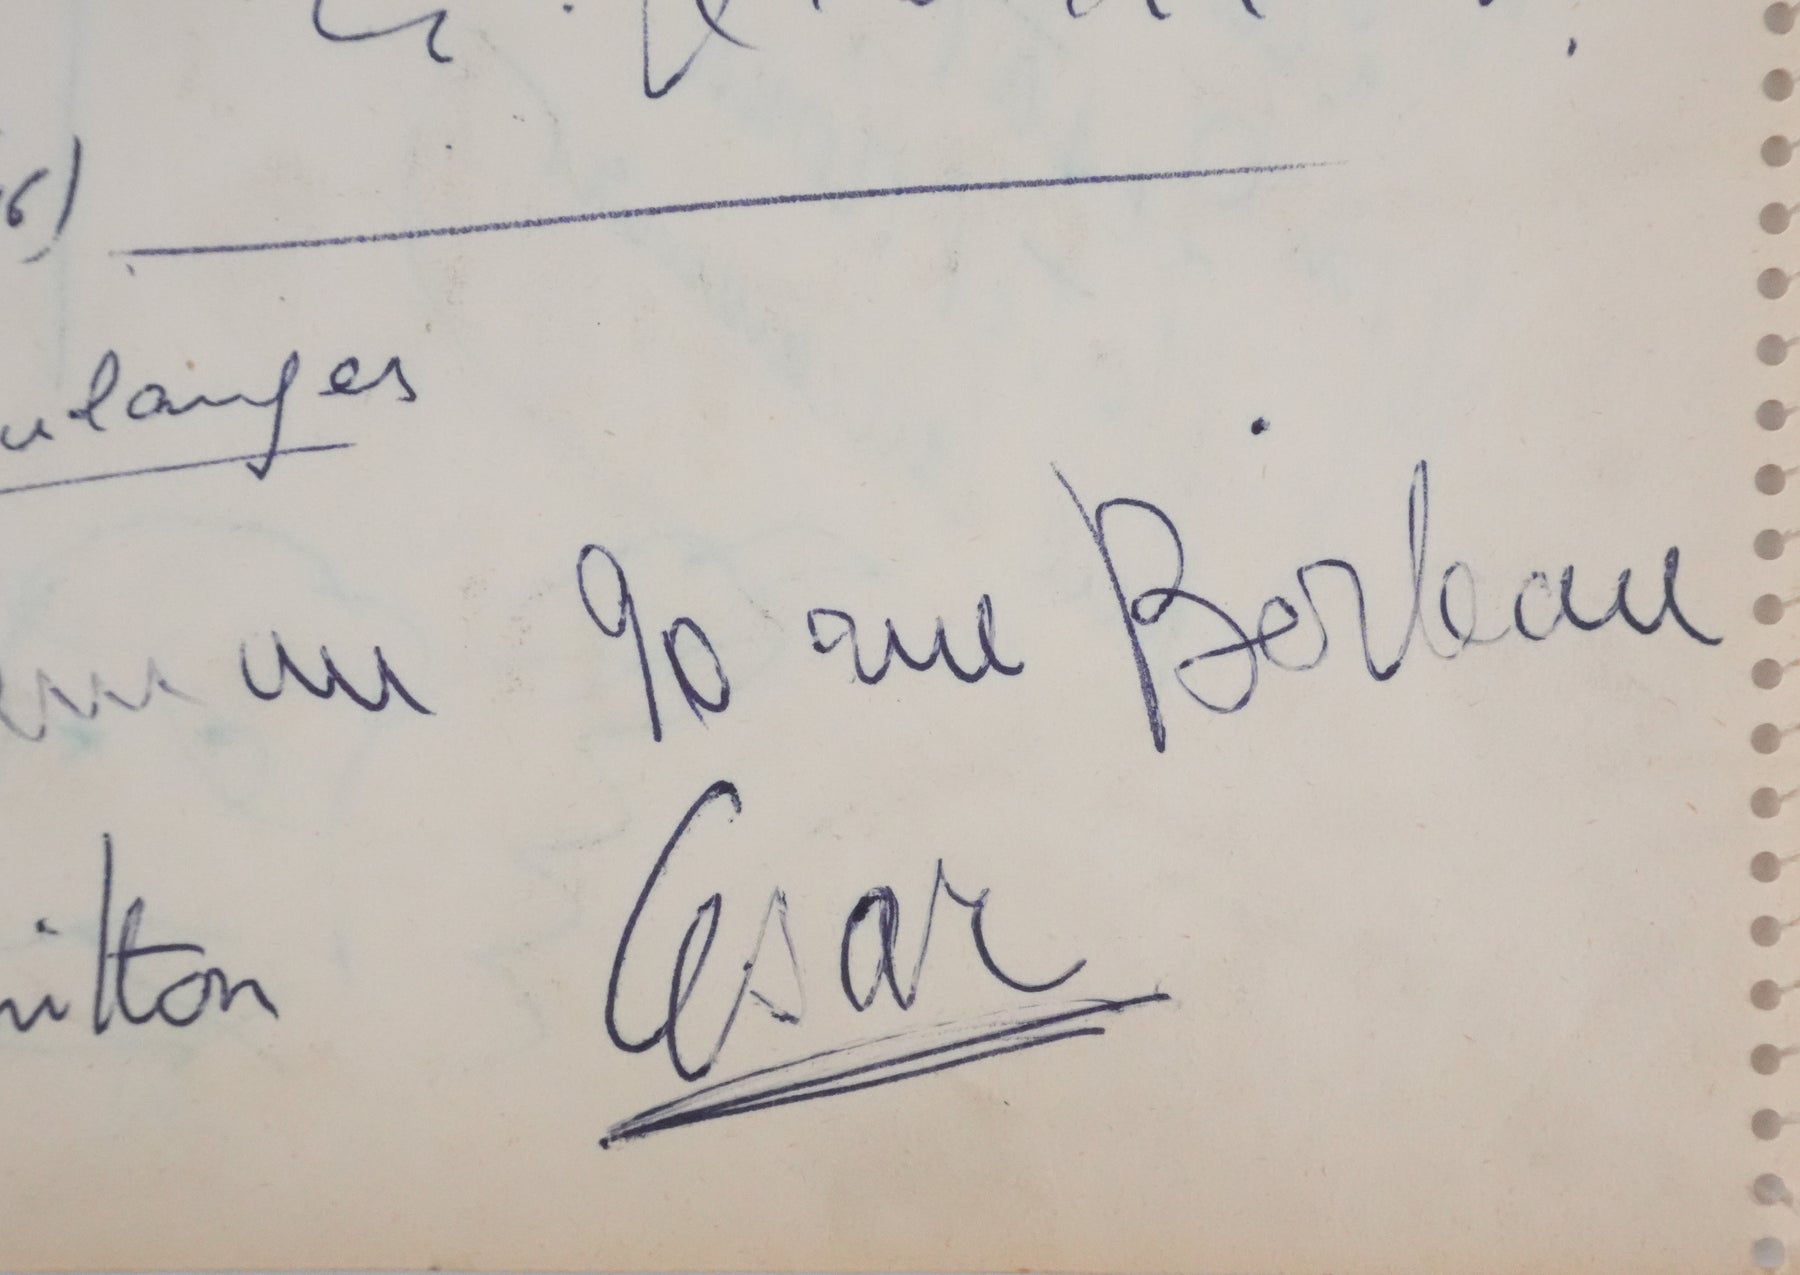 6)
ulanges
au 90 rue Boileau
ilton Cesar